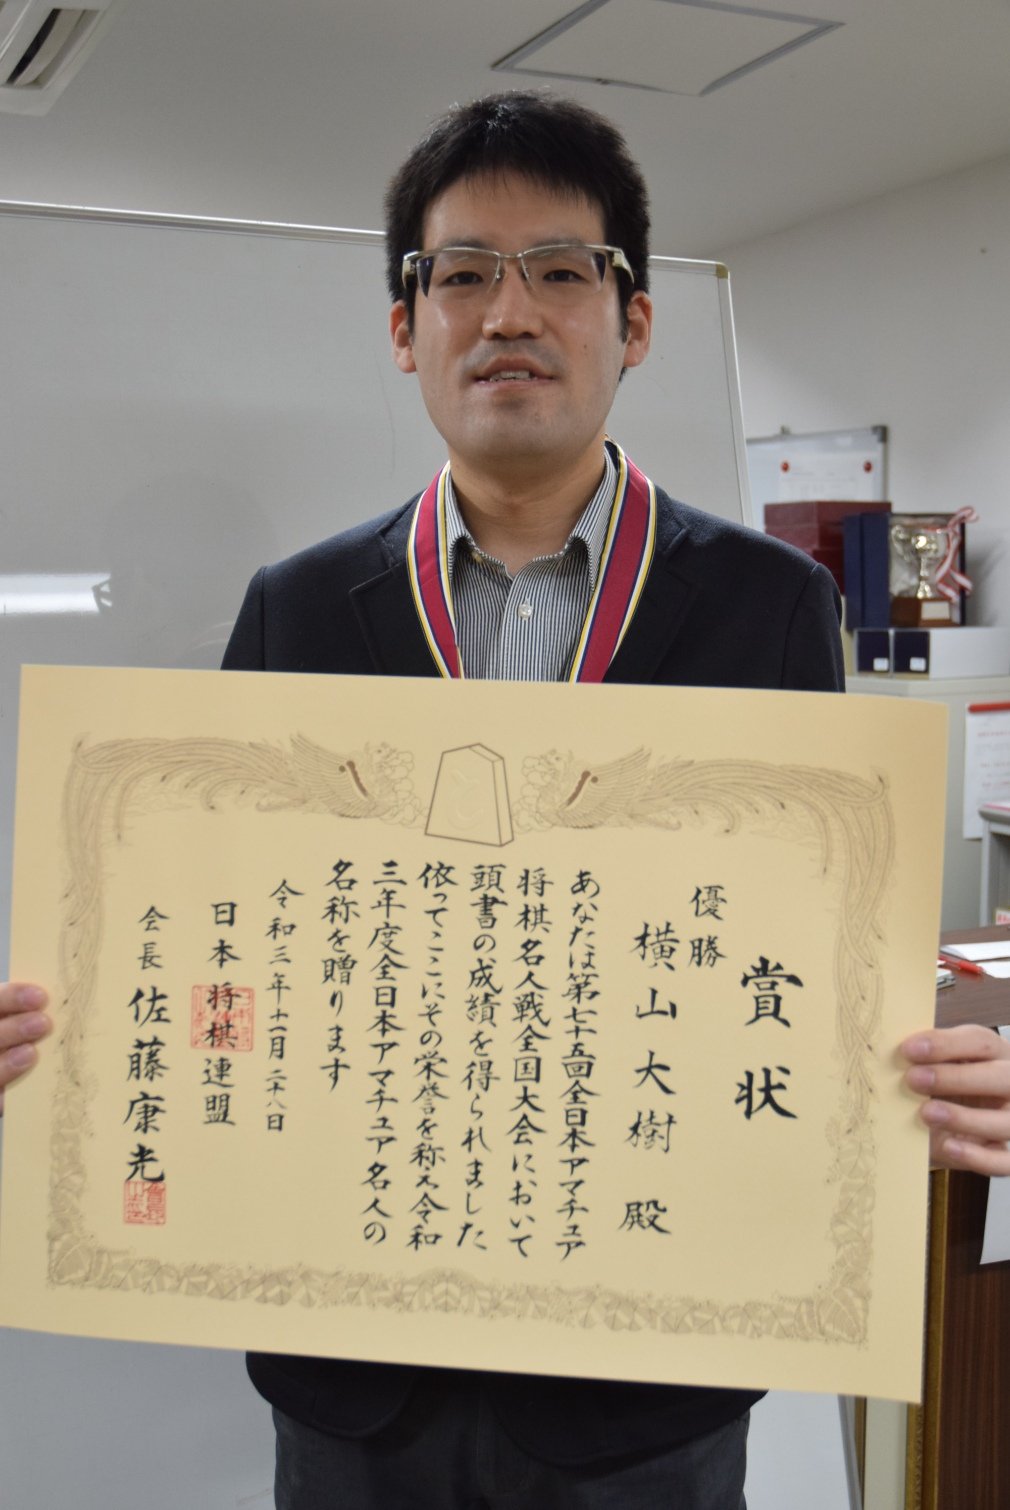 賞状
優勝
横山大樹 殿
あなたは第七十五回全日本アマチュア
将棋名人戦全国大会において
頭書の成績を得られました
依ってここにその栄誉を称え令和
三年度全日本アマチュア名人の
名称を贈ります
令和三年十一月二十八日
日本将棋連盟
会長 佐藤康光